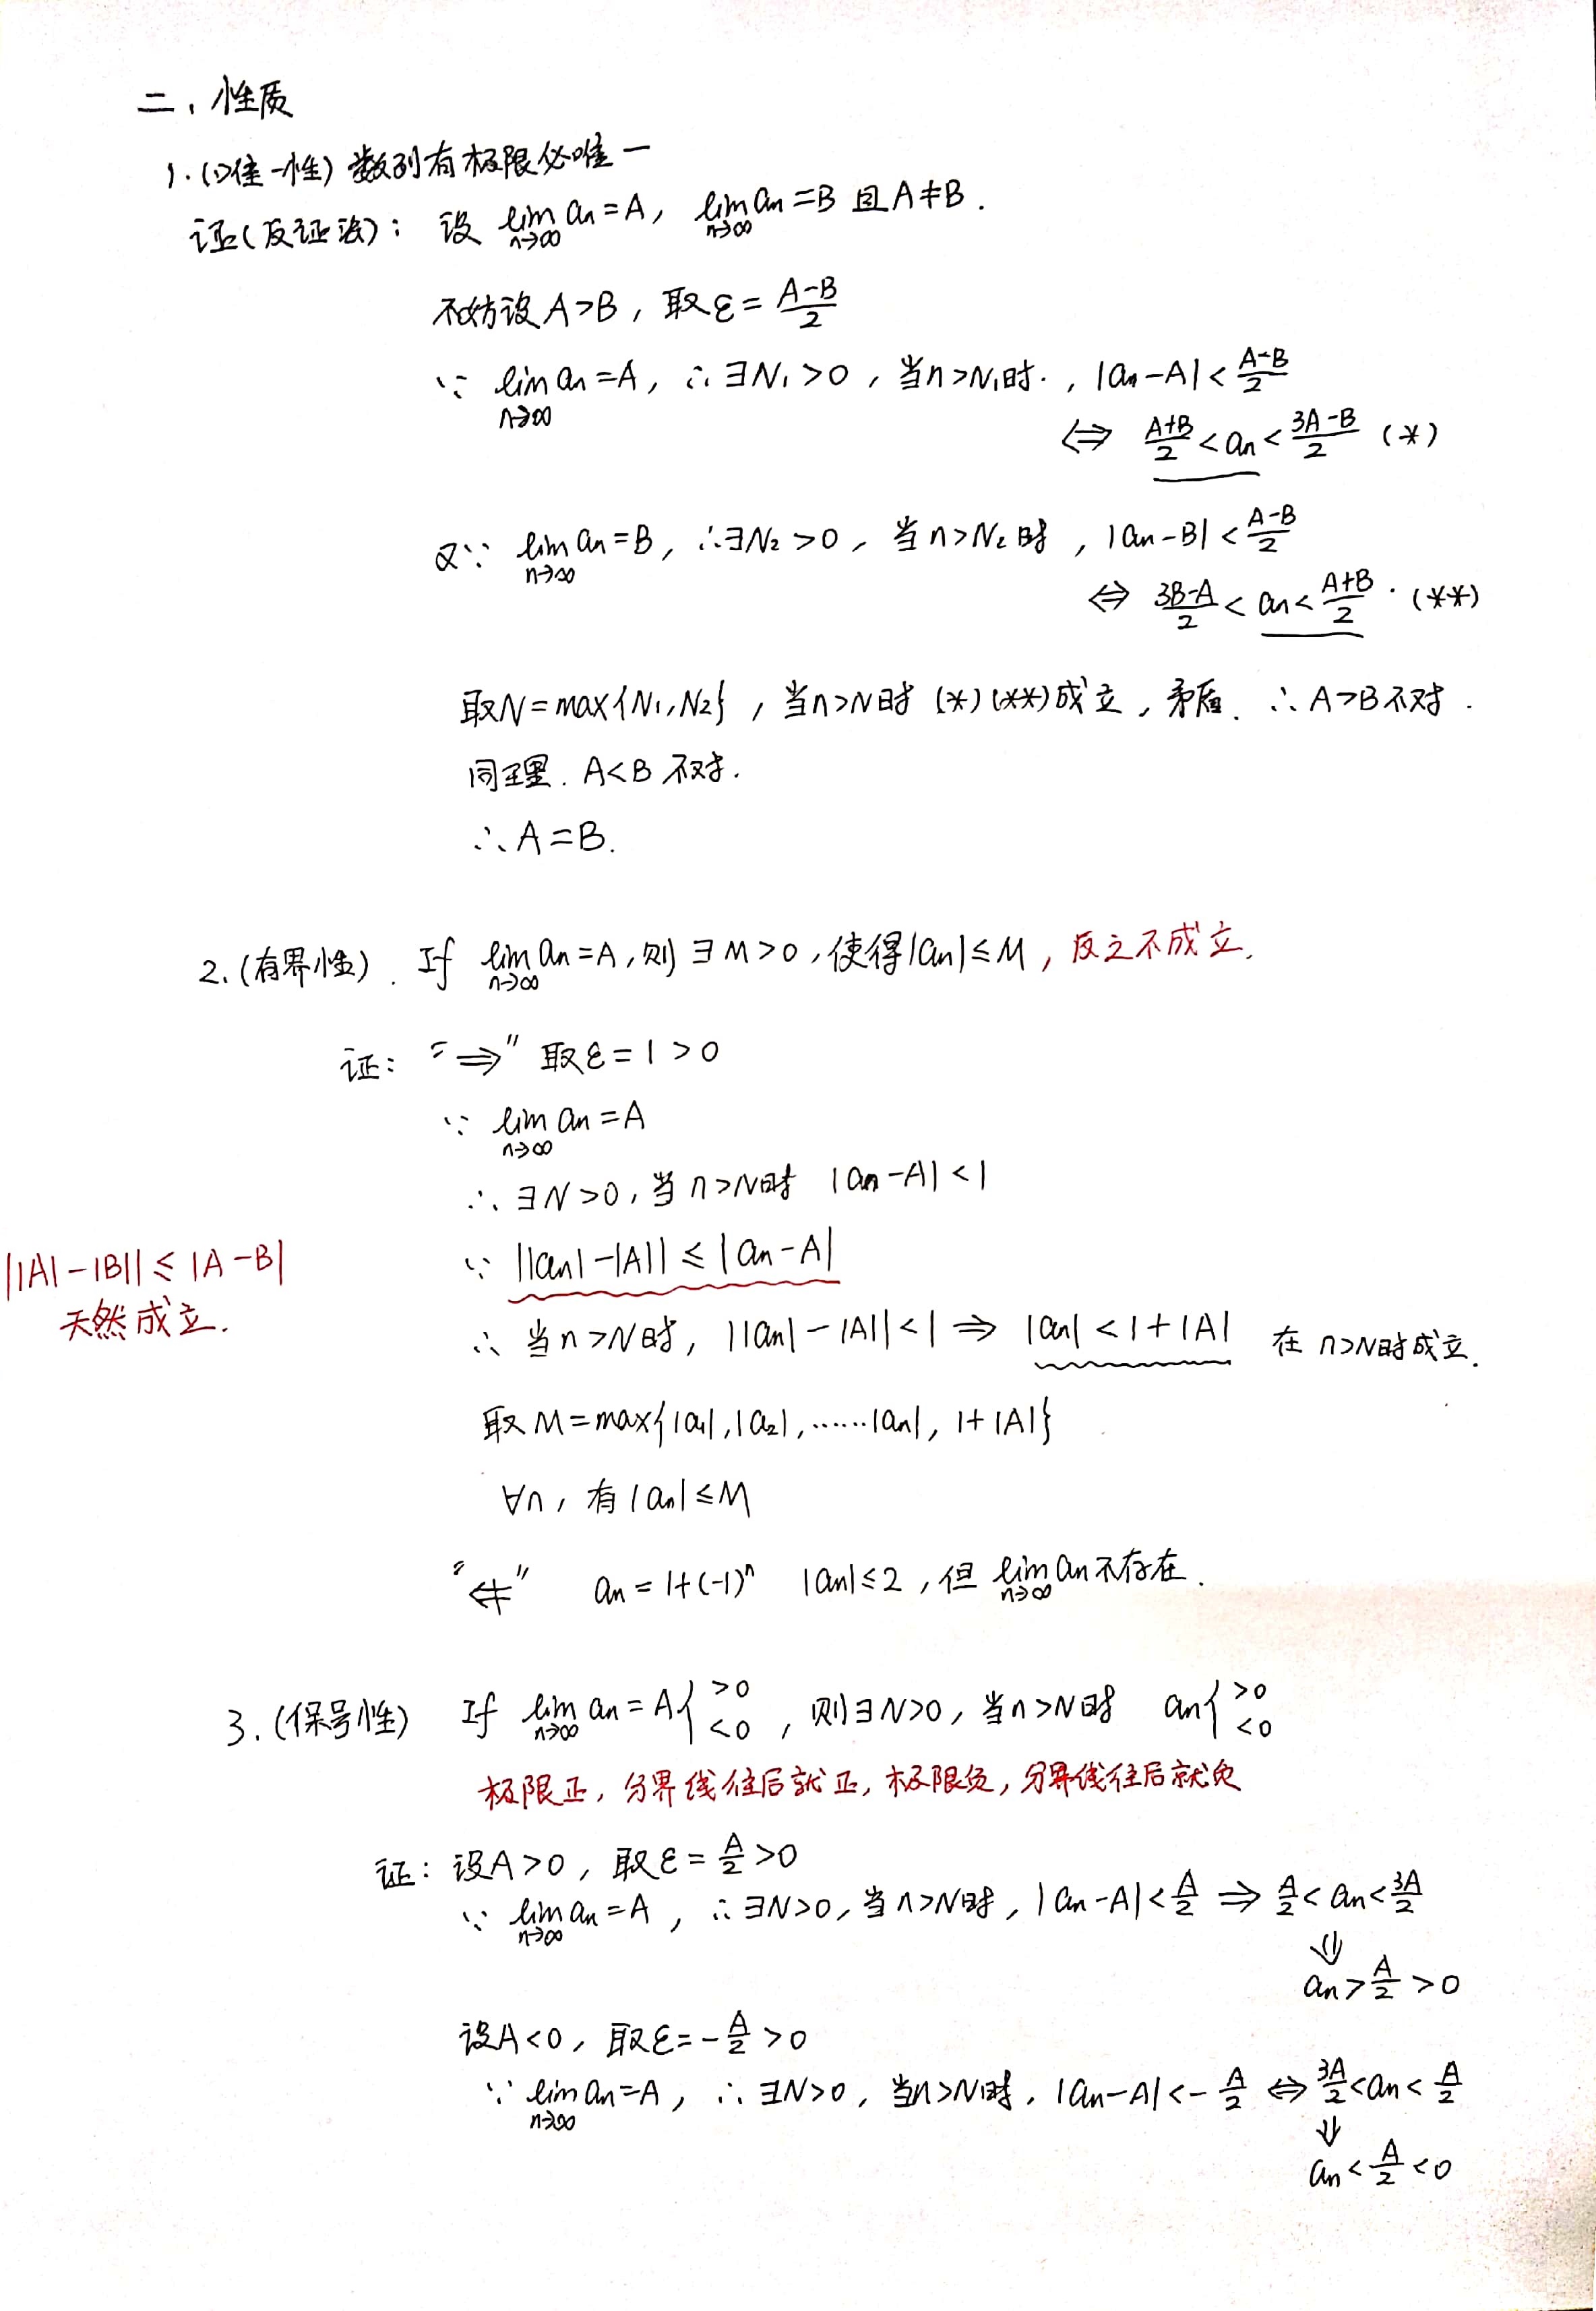 二、性质
1.(唯一性) 数列有极限必唯一
证(反证法): 设 lim_{n→∞} an = A, lim_{n→∞} an = B 且 A ≠ B.
不妨设 A > B, 取 ε = (A-B)/2
∵ lim_{n→∞} an = A, ∴ ∃N₁ > 0, 当 n > N₁时, |an - A| < (A-B)/2
⇔ (A+B)/2 < an < (3A-B)/2 (*)
又∵ lim_{n→∞} an = B, ∴ ∃N₂ > 0, 当 n > N₂ 时, |an - B| < (A-B)/2
⇔ (3B-A)/2 < an < (A+B)/2. (**)
取 N = max{N₁, N₂}, 当 n > N 时 (*) (**) 成立, 矛盾. ∴ A > B 不对.
同理. A < B 不对.
∴ A = B.
2.(有界性). If lim_{n→∞} an = A, 则 ∃ M > 0, 使得 |an| ≤ M, 反之不成立.
证: "⇒" 取 ε = 1 > 0
∵ lim_{n→∞} an = A
∴ ∃ N > 0, 当 n > N 时 |an - A| < 1
||A| - |B|| ≤ |A - B|
天然成立.
∵ ||an| - |A|| ≤ |an - A|
∴ 当 n > N 时, ||an| - |A|| < 1 ⇒ |an| < 1 + |A| 在 n > N时成立.
取 M = max{|a₁|, |a₂|, ......|an|, 1 + |A|}
∀n, 有 |an| ≤ M
"⇍" an = 1 + (-1)ⁿ |an| ≤ 2, 但 lim_{n→∞} an 不存在.
3.(保号性) If lim_{n→∞} an = A { >0 <0, 则 ∃ N > 0, 当 n > N 时 an { >0 <0
极限正, 分界线往后就正, 极限负, 分界线往后就负
证: 设 A > 0, 取 ε = A/2 > 0
∵ lim_{n→∞} an = A, ∴ ∃N > 0, 当 n > N时, |an - A| < A/2 ⇒ A/2 < an < 3A/2
⇓
an > A/2 > 0
设 A < 0, 取 ε = -A/2 > 0
∵ lim_{n→∞} an = A, ∴ ∃N > 0, 当 n > N时, |an - A| < -A/2 ⇔ 3A/2 < an < A/2
⇓
an < A/2 < 0